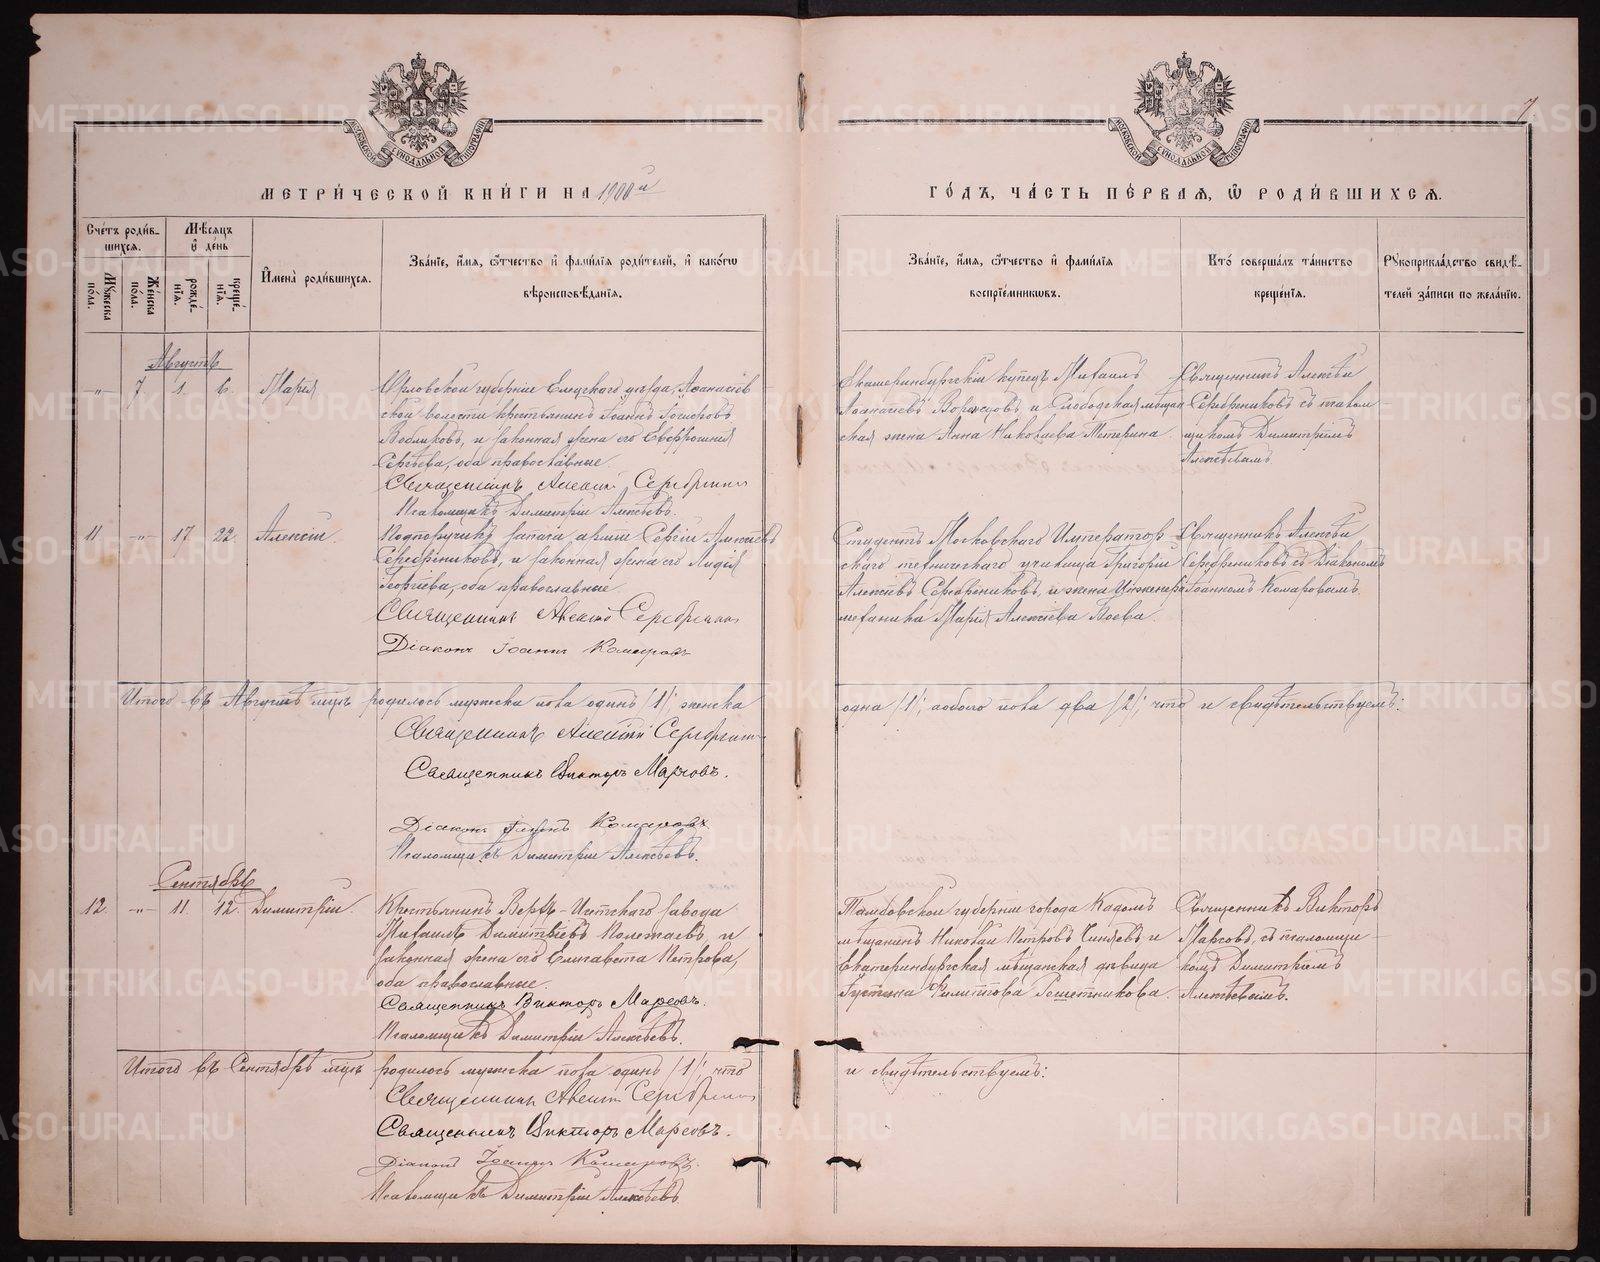 МЕТРИ́ЧЕСКОЙ КНИ́ГИ НА 1900й
ГО́ДЪ, ЧА́СТЬ ПЕ́РВАЯ, Ѿ РОДИ́ВШИХСЯ.
7
МОСКОВСКОЙ СѴНОДАЛЬНОЙ ТИПОГРАФІИ
МОСКОВСКОЙ СѴНОДАЛЬНОЙ ТИПОГРАФІИ
Сче́тъ роди́в-
шихся.
Мѣ́сяцъ
и҆ де́нь
Мꙋжеска по́ла.
Же́нска по́ла.
рожде́-
нїя.
креще́-
нїя.
И҆мена̀ роди́вшихся.
Зва́нїе, и҆́мя, ѻ҆́тчество и҆ фами́лїя роди́телей, и҆ како́гѡ
вѣроисповѣ́данїя.
Зва́нїе, и҆́мя, ѻ҆́тчество и҆ фами́лїя
воспрїе́мникѡвъ.
Кто̀ соверша́лъ та́инство
креще́нїя.
Рꙋкоприкла́дство свидѣ́-
телей за́писи по жела́нїю.
Августъ
-„- 7 1. 6. Марія
Орловской губерніи Елецкаго уѣзда, Аѳанасьев-
ской волости крестьянинъ Іоаннъ
и законная жена его Евфросинія
Сергѣева, оба православные.
Священникъ Алексій Серебренник
Псаломщикъ Димитрій Алексѣевъ.
Екатеринбургскій купецъ Михаилъ
Аѳанасьевъ и Слободская мѣщан-
ская жена Анна Николаева
Священникъ Алексѣй
Серебрениковъ съ псалом-
щикомъ Димитріемъ
Алексѣевымъ
11 -„- 17 22. Алексій.
Подпоручикъ запаса арміи Сергій Алексѣевъ
Серебрениковъ, и законная жена его Лидія
Георгіева, оба православные.
Священникъ Алексій Серебренник
Діаконъ Іоаннъ Комаровъ
Студентъ Московскаго Император-
скаго техническаго училища Григорій
Алексѣевъ Серебрениковъ, и жена Инженера
механика Марія Алексѣева Боева.
Священникъ Алексѣй
Серебрениковъ съ Діакономъ
Іоанномъ Комаровымъ.
Итого въ Августѣ мцѣ родилось мужеска пола одинъ /1/, женска
одна /1/, обоего пола два /2/; что и свидѣтельствуемъ:
Священникъ Алексій Серебренник
Священникъ Викторъ Марсовъ.
Діаконъ Іоаннъ Комаровъ
Псаломщикъ Димитрій Алексѣевъ.
Сентябрь
12. -„- 11. 12. Димитрій.
Крестьянинъ Верхъ-Исетскаго завода
Михаилъ Димитріевъ Полежаевъ и
законная жена его Елисавета Петрова,
оба православные.
Священникъ Викторъ Марсовъ.
Псаломщикъ Димитрій Алексѣевъ.
Тамбовской губерніи города Кадомъ
мѣщанинъ Николай Петровъ и
Екатеринбургская мѣщанская дѣвица
Филиппова Решетникова.
Священникъ Викторъ
Марсовъ, съ псаломщи-
комъ Димитріемъ
Алексѣевымъ.
Итого въ Сентябрѣ мцѣ родилось мужеска пола одинъ /1/, что
и свидѣтельствуемъ:
Священникъ Алексій Серебренник
Священникъ Викторъ Марсовъ.
Діаконъ Іоаннъ Комаровъ.
Псаломщикъ Димитрій Алексѣевъ
METRIKI.GASO-URAL.RU